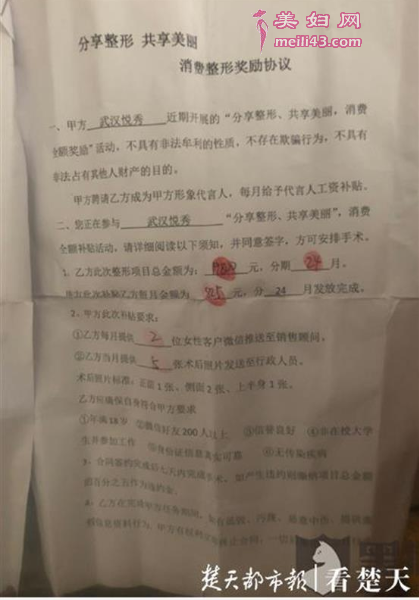 美妇网
meili43.com
分享整形 共享美丽
消费整形奖励协议
一、甲方 武汉悦秀 近期开展的“分享整形、共享美丽，消费
全额奖励”活动，不具有非法牟利的性质，不存在欺骗行为，不具有
非法占有其他人财产的目的。
甲方聘请乙方成为甲方形象代言人，每月给予代言人工资补贴。
二、您正在参与 武汉悦秀 “分享整形、共享美丽”，消费
全额补贴活动，请详细阅读以下须知，并同意签字，方可安排手术。
1、乙方此次整形项目总金额为： 元，分期 24 月。
甲方此次补贴乙方每月金额为 元，分 24 月发放完成。
2、甲方此次补贴要求：
①乙方每月提供 2 位女性客户微信推送至销售顾问。
②乙方当月提供 5 张术后照片发送至行政人员。
术后照片标准：正面1张、侧面2张、上半身1张。
乙方应确保自身符合甲方要求
①年满18岁 ②微信好友200人以上 ③信誉良好 ④非在校大学
生并参加工作 ⑤身份证信息真实可靠 ⑥无传染疾病
3、合同签约完成后七天内完成手术，如产生违约则缴纳项目总金额
的百分之五作为违约金。
4、乙方在完成甲方任务期间，
楚天都市报 看楚天